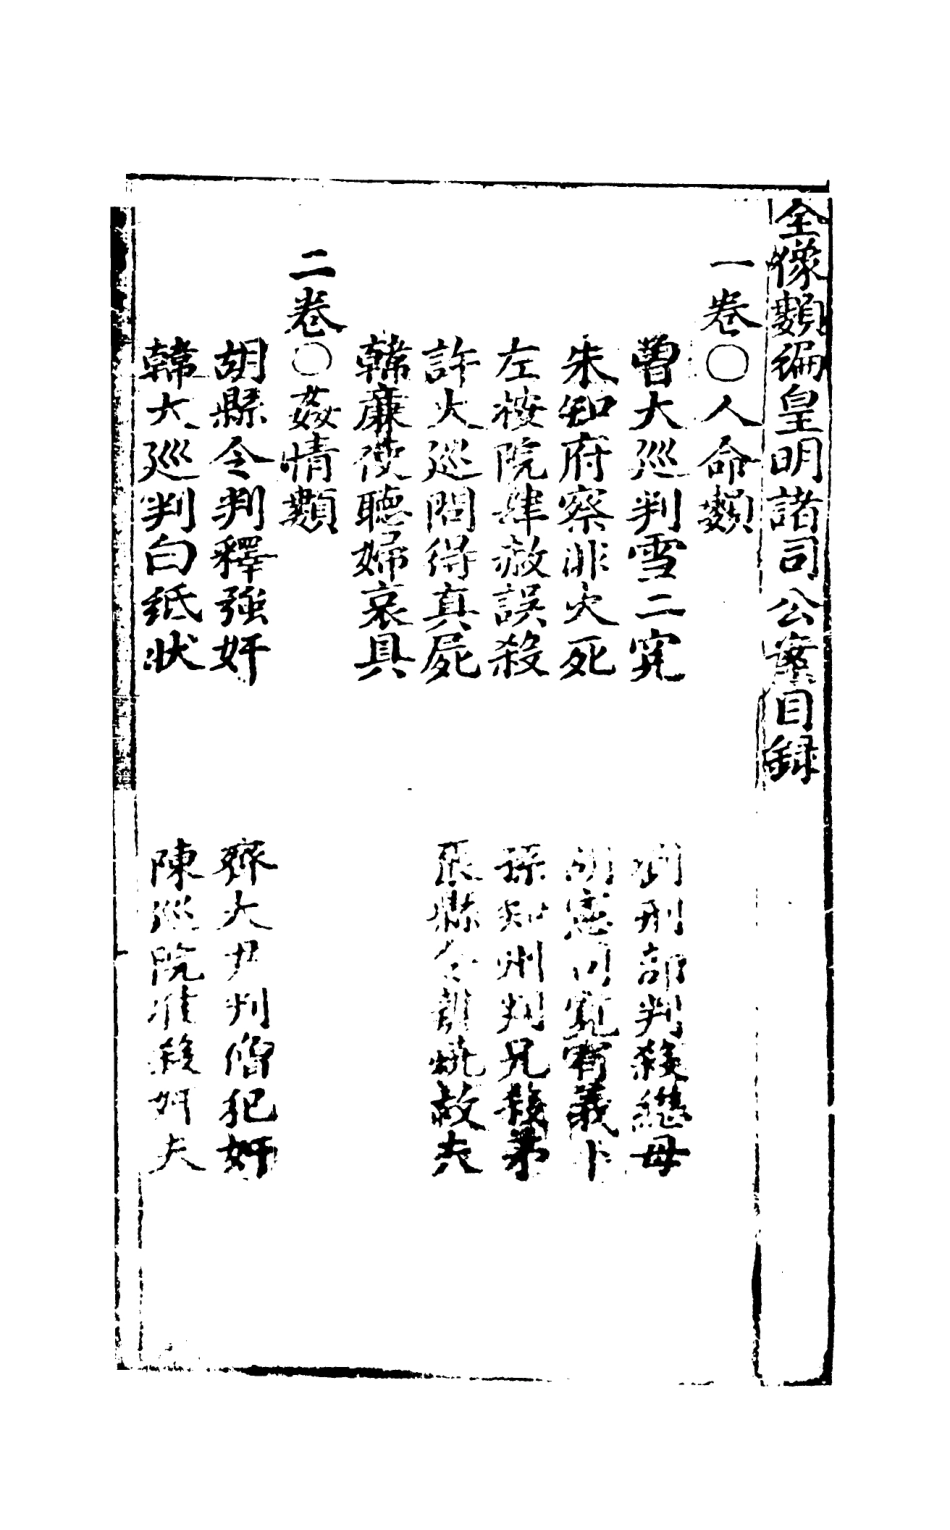 全像類編皇明諸司公案目錄
一卷〇人命類
曾大巡判雪二寃
劉刑部判殺繼母
朱知府察非火死
胡憲司寬宥義卜
左按院肆赦誤殺
孫知州判兄殺弟
許大巡問得真屍
張縣令辨燒故夫
韓廉使聽婦哀具
二卷〇姦情類
胡縣令判釋強奸
齊大尹判僧犯奸
韓大巡判白紙狀
陳巡院准殺奸夫